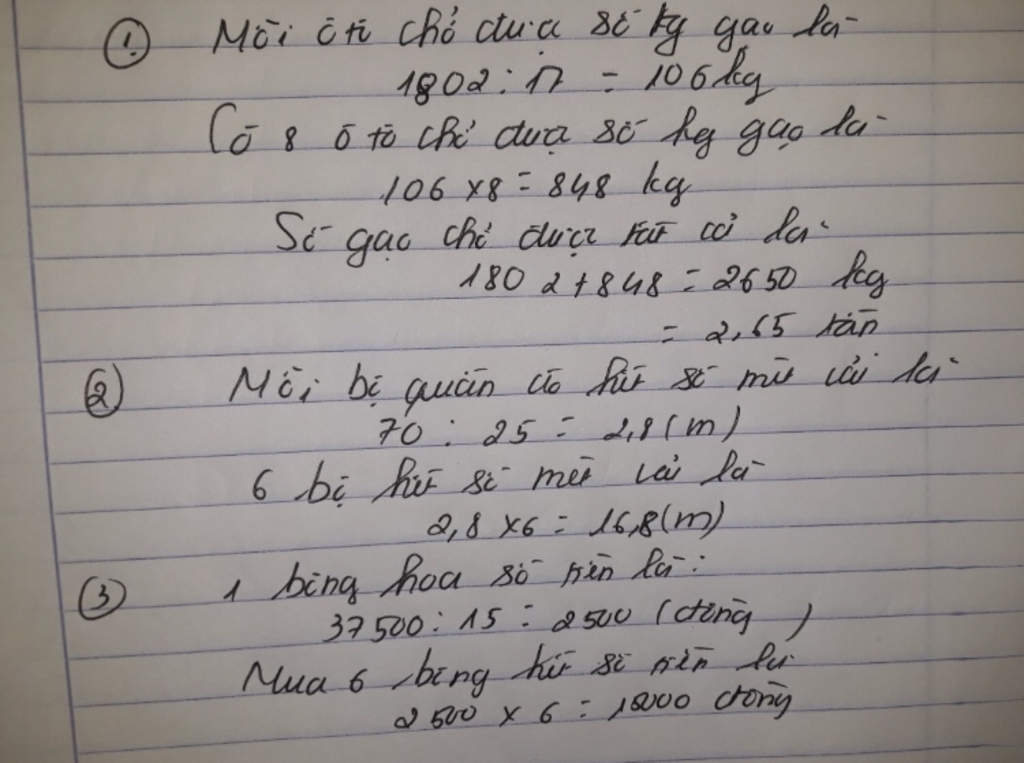 ① Mỗi ô tô chở được số kg gạo là
1802 : 17 = 106 kg
Có 8 ô tô chở được số kg gạo là
106 x8 = 848 kg
Số gạo chở được tất cả là
1802 + 848 = 2650 kg
= 2,65 tấn
② Mỗi bộ quần áo hết số mét vải là
70 : 25 = 2,8 (m)
6 bộ hết số mét vải là
2,8 x6 = 16,8 (m)
③ 1 bông hoa số tiền là :
37500 : 15 = 2500 (đồng )
Mua 6 bông hết số tiền là
2500 x 6 = 15000 đồng